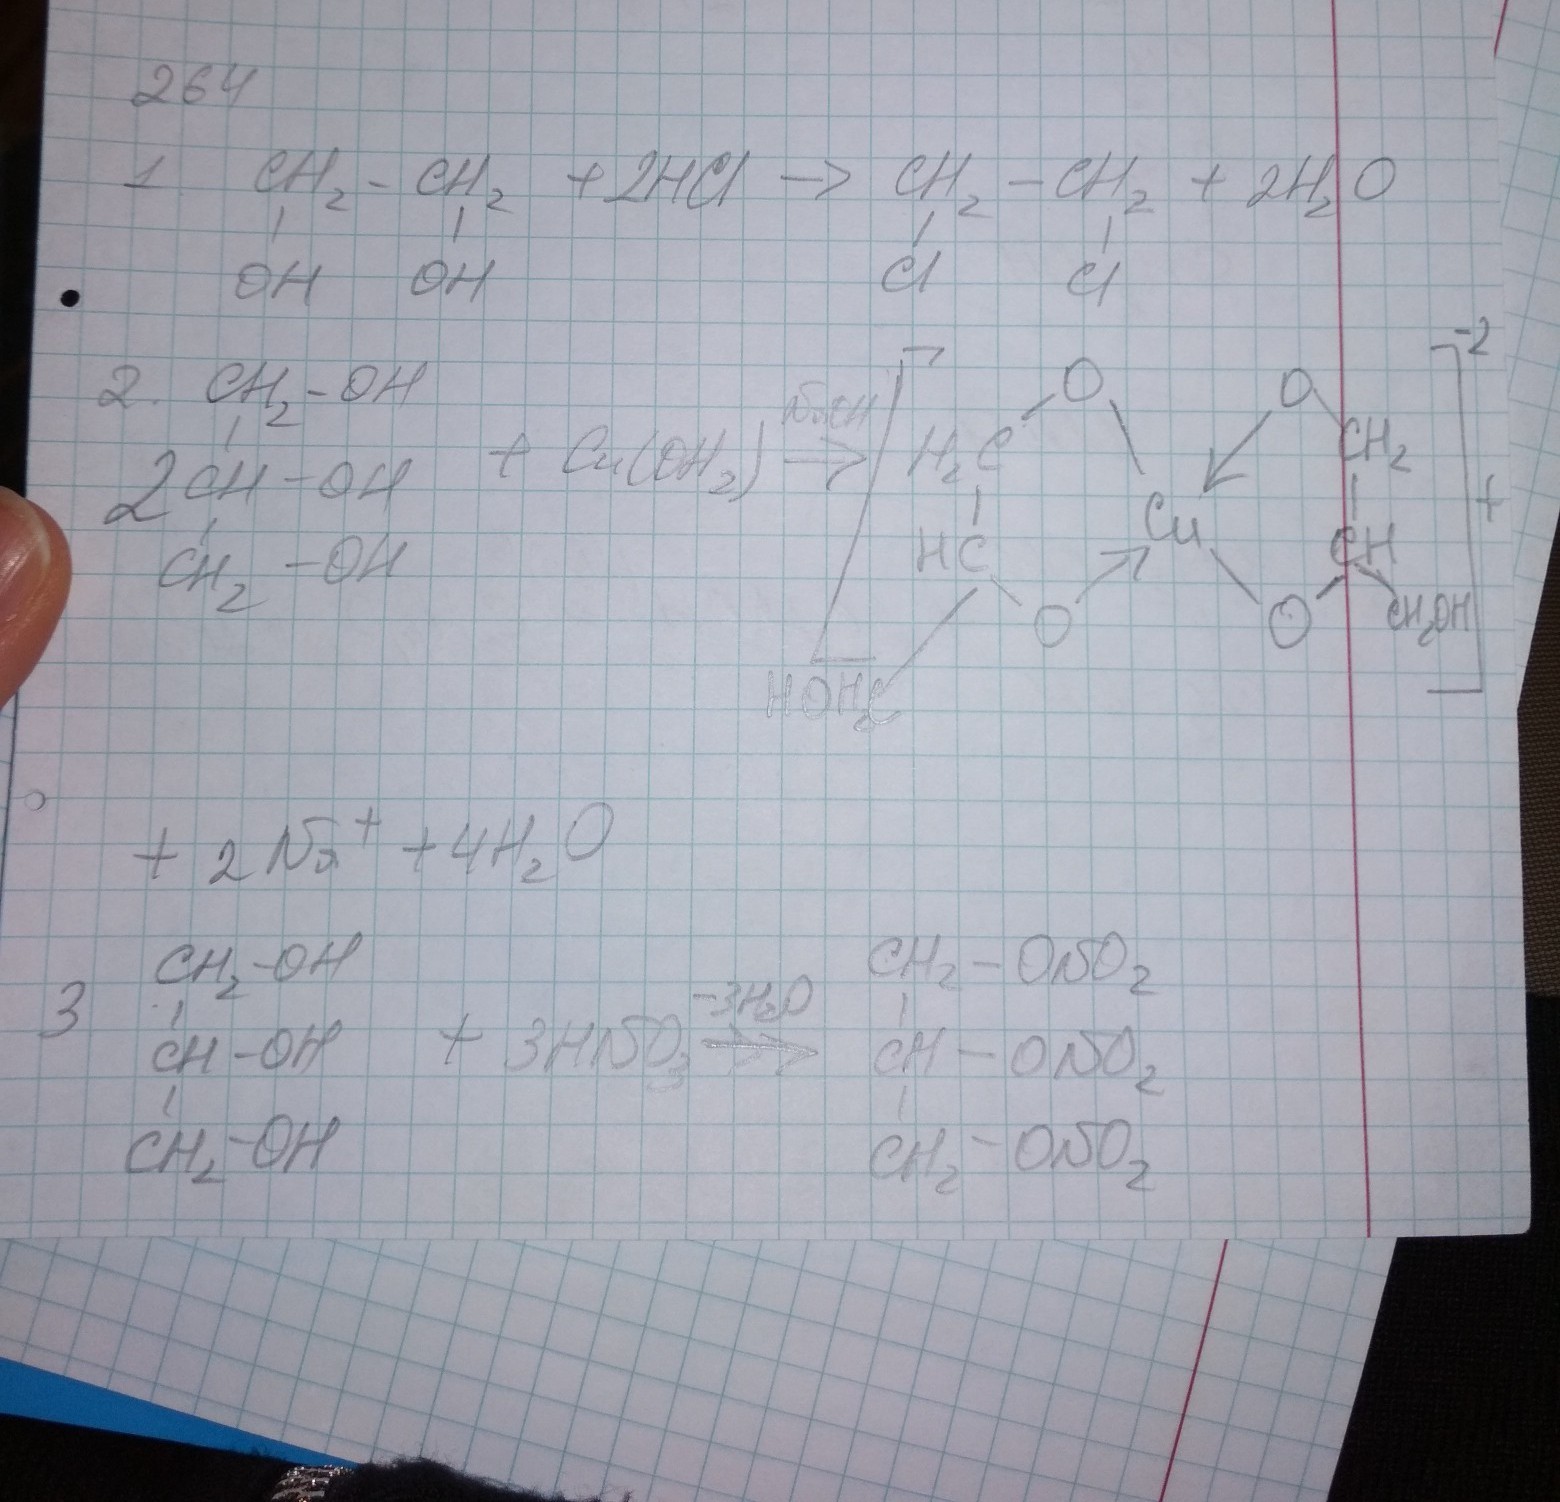 264
1. CH₂ - CH₂ + 2HCl → CH₂ - CH₂ + 2H₂O
OH OH Cl Cl
2. CH₂ - OH
2 CH - OH + Cu(OH₂) NaOH →
CH₂ - OH
[ H₂C O O CH₂ ]⁻² +
HC Cu CH
O O CH₂OH
HOH₂C
+ 2Na⁺ + 4H₂O
CH₂ - OH CH₂ - ONO₂
3 CH - OH + 3HNO₃ -3H₂O → CH - ONO₂
CH₂ - OH CH₂ - ONO₂